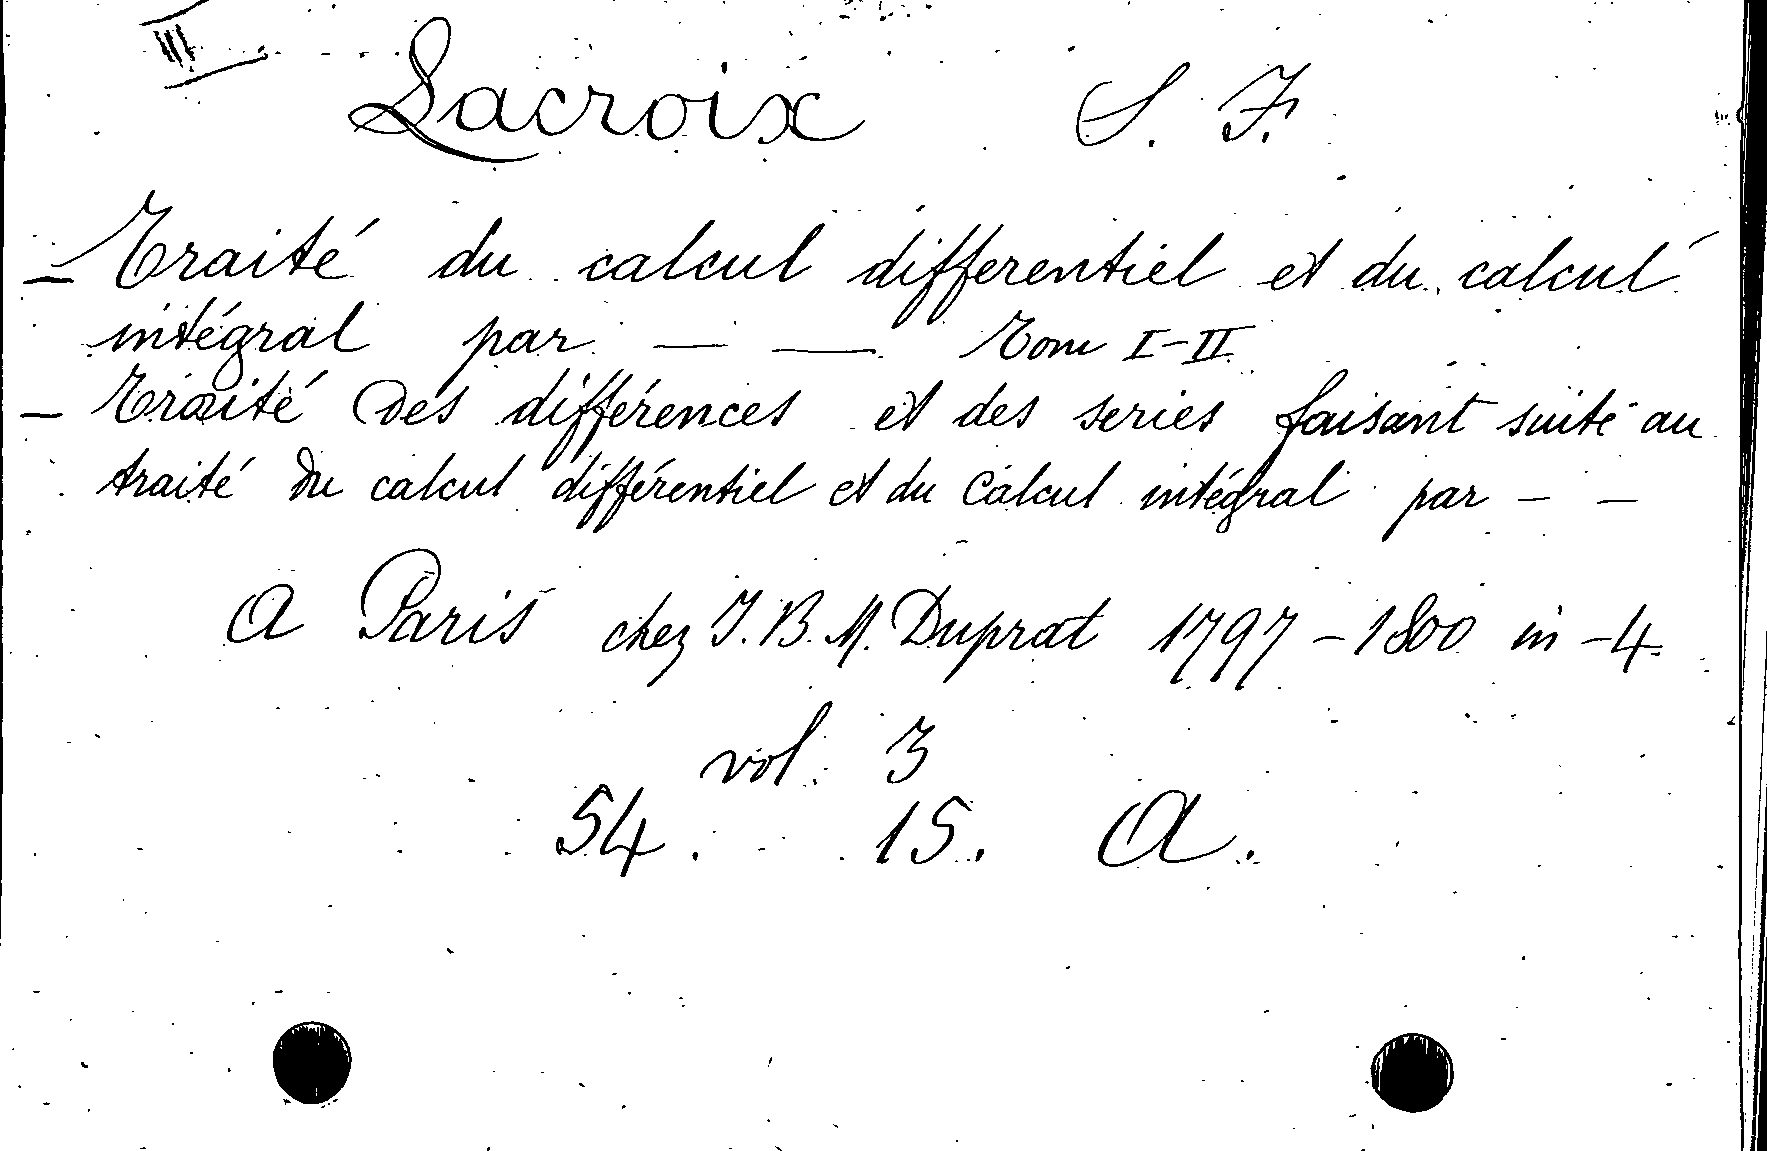 III
Lacroix S. F.
— Traité du calcul differentiel et du calcul
intégral par — — Tom I-II
— Traité des différences et des series faisant suite au
traité du calcul différentiel et du calcul intégral par — —
A Paris chez J. B. M. Duprat 1797-1800 in-4
vol. 3
54. 15. A.